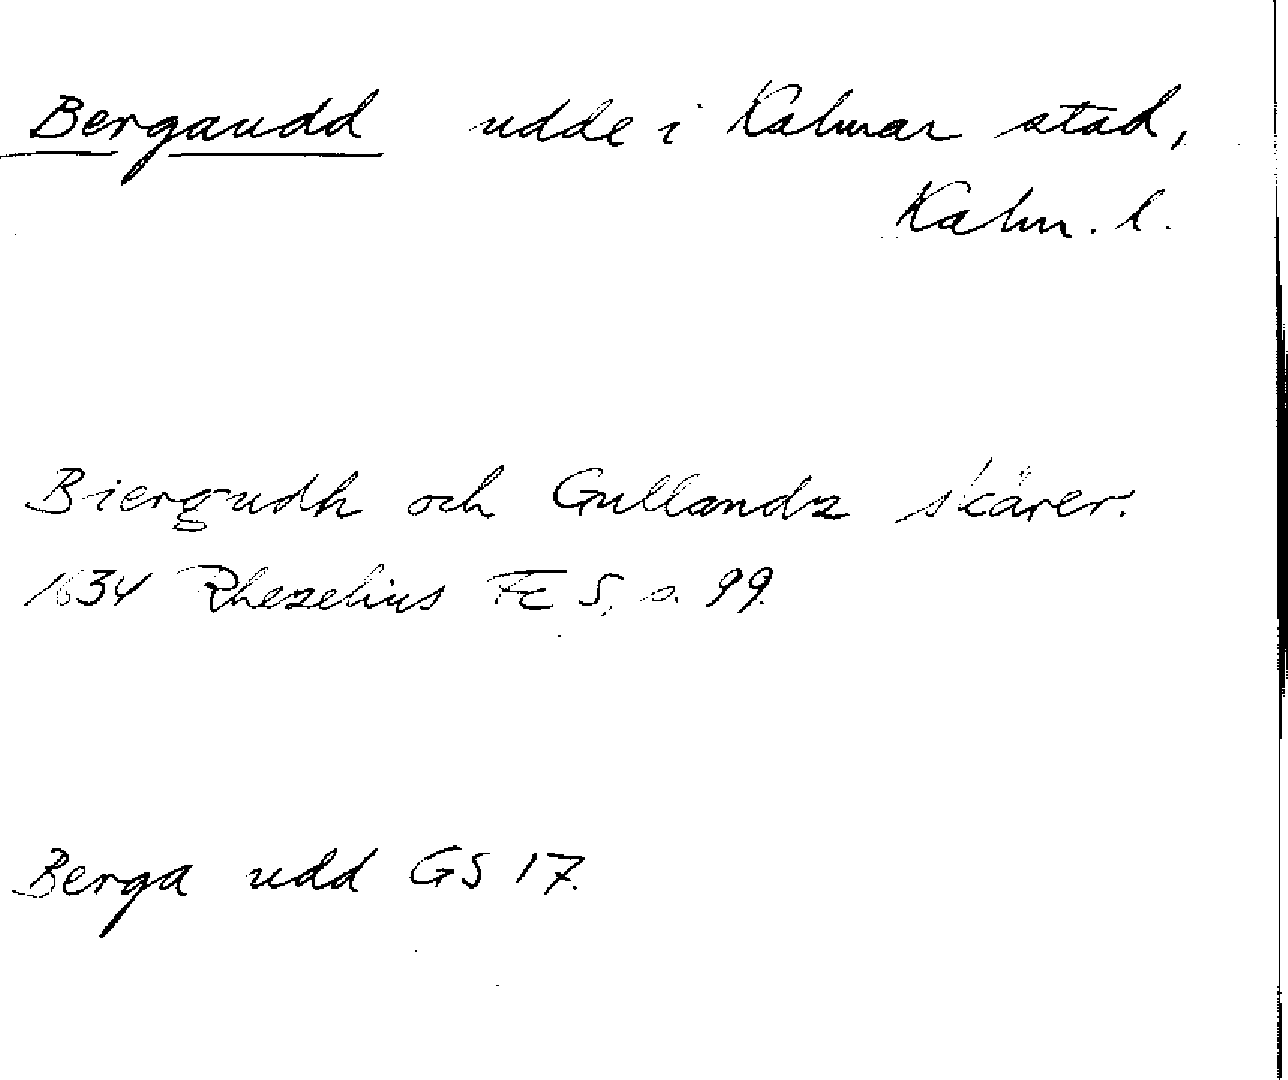 Bergaudd udde i Kalmar stad,
Kalm. l.
Biergudh och Gullandz skärer.
1634 Rhezelius Fc 5, s. 99.
Berga udd GS 17.